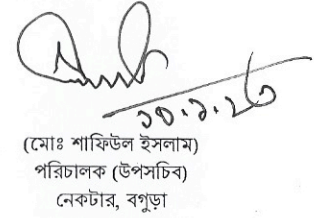 ১০.১.২৩
(মোঃ শাফিউল ইসলাম)
পরিচালক (উপসচিব)
নেকটার, বগুড়া